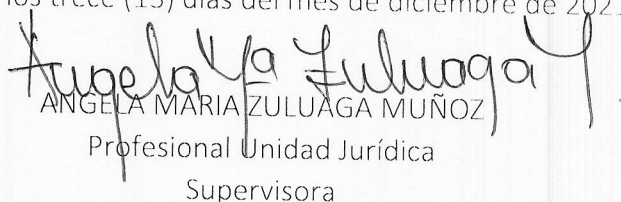 los trece (13) días del mes de diciembre de 202
Angela Ma Zuluaga
ANGELA MARIA ZULUAGA MUÑOZ
Profesional Unidad Jurídica
Supervisora